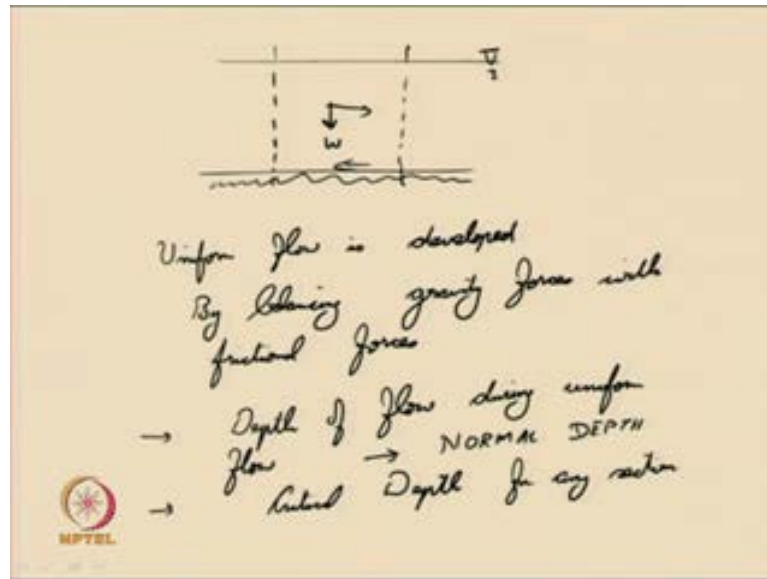 W
Uniform flow is developed
By balancing gravity forces with
frictional forces
→ Depth of flow during uniform
flow → NORMAL DEPTH
→ Critical Depth for any section
NPTEL